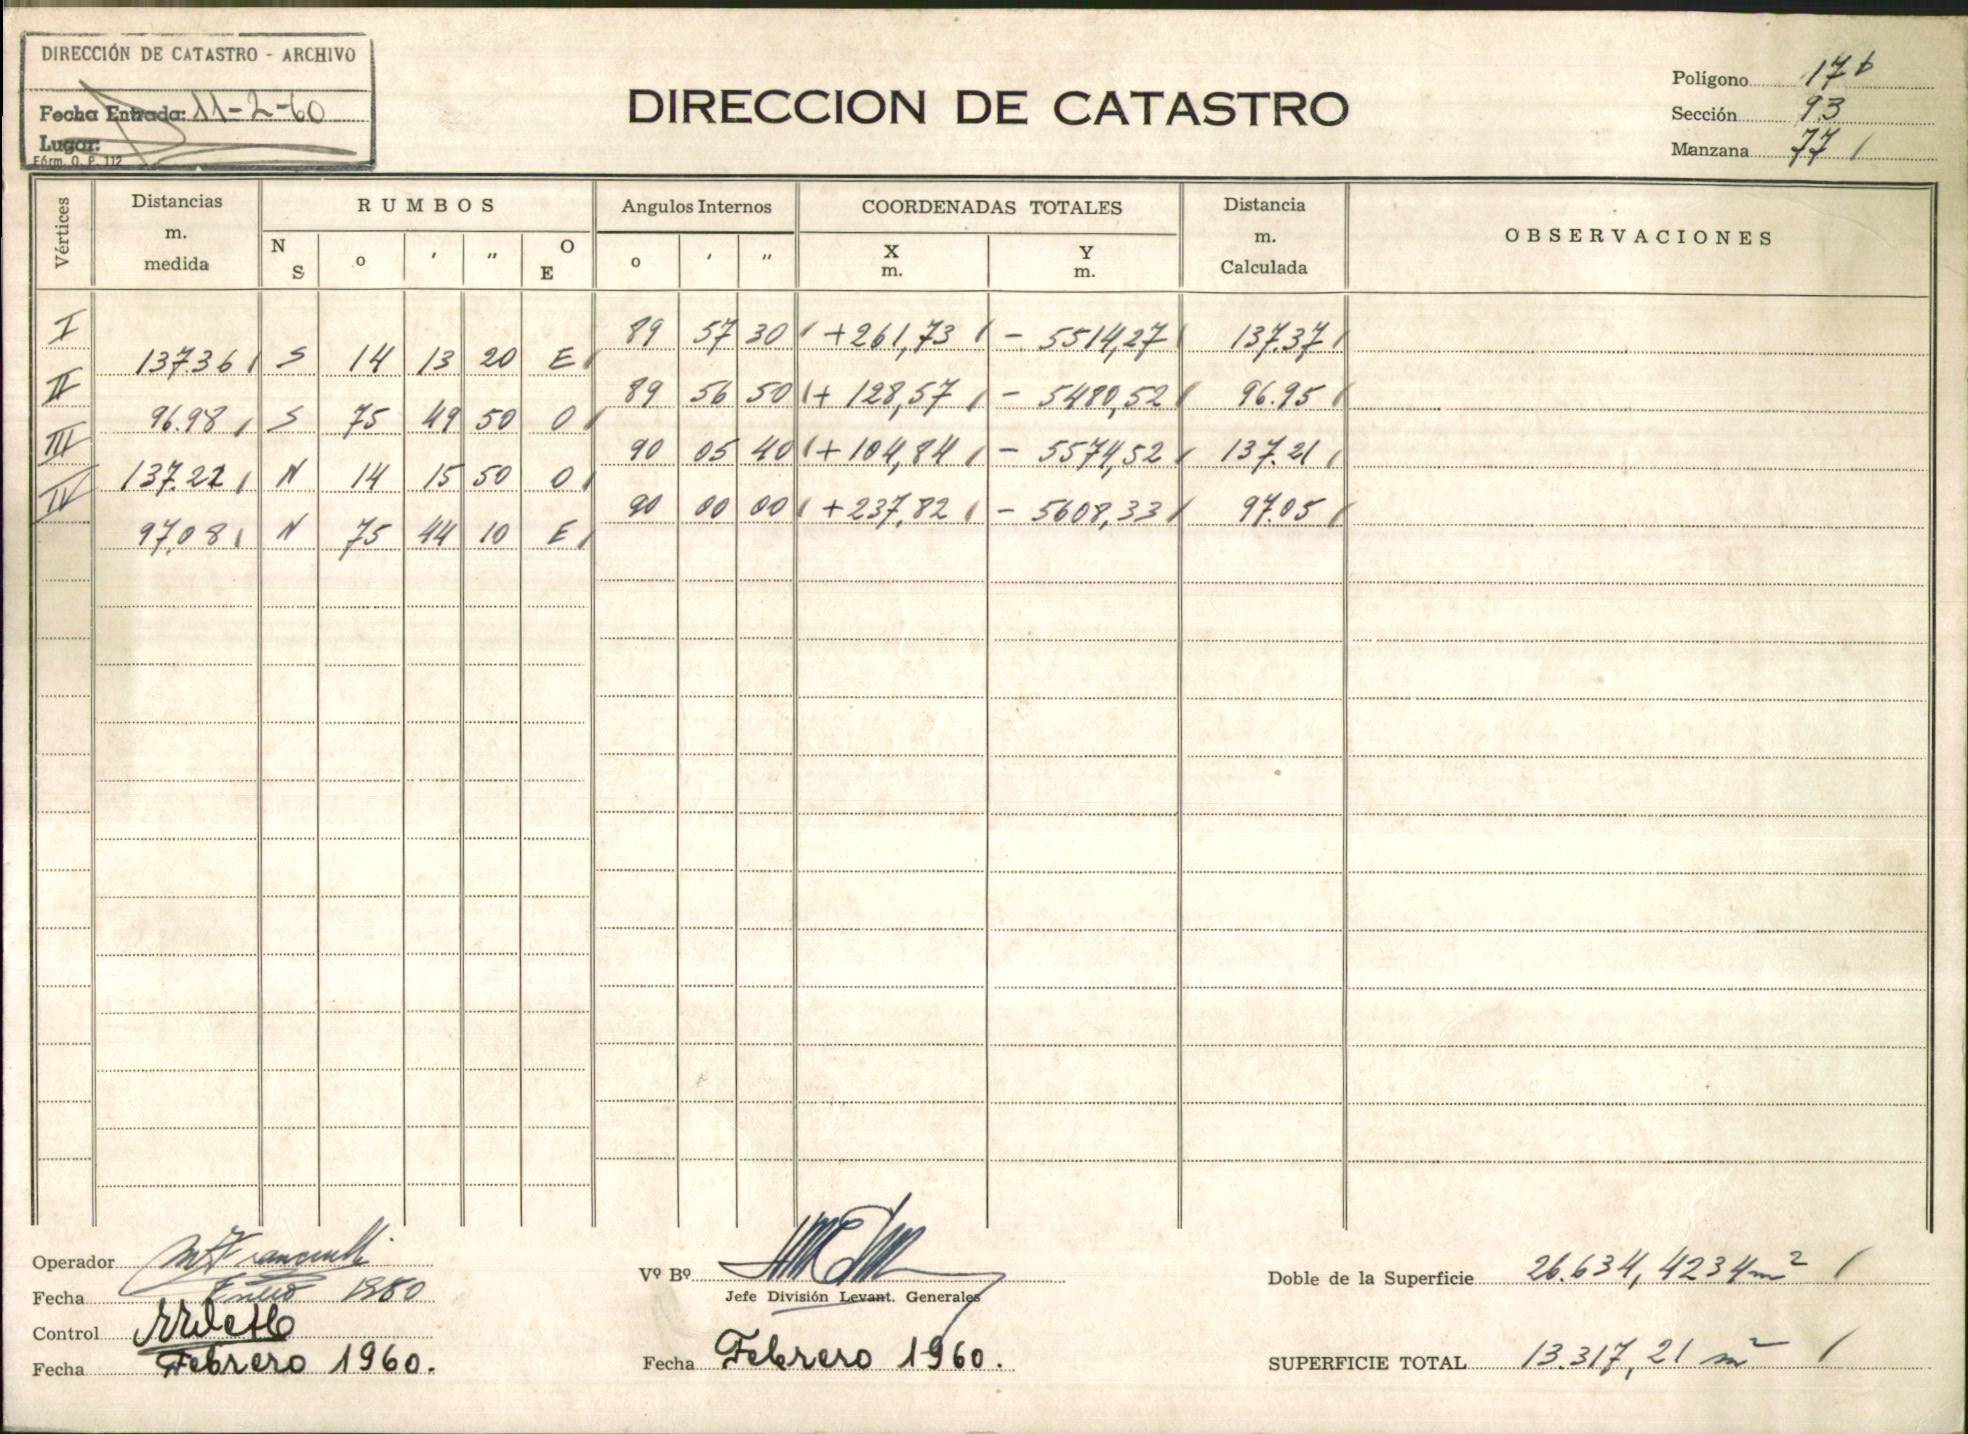 DIRECCIÓN DE CATASTRO - ARCHIVO
Fecha Entrada: 11-2-60
Lugar:
Fórm. O. P. 112
DIRECCION DE CATASTRO
Polígono 17 b
Sección 93
Manzana 77
Vértices Distancias m. medida RUMBOS Angulos Internos COORDENADAS TOTALES Distancia m. Calculada OBSERVACIONES
N S o ' " O E o ' " X m. Y m.
I 89 57 30 +261,73 - 5514,27 137.37
137.36 S 14 13 20 E
II 89 56 50 + 128,57 - 5480,52 96.95
96.98 S 75 49 50 O
III 90 05 40 + 104,84 - 5574,52 137.21
137.22 N 14 15 50 O
IV 90 00 00 + 237,82 - 5608,33 97.05
97.08 N 75 44 10 E
Operador
Fecha Enero 1960
Control
Fecha Febrero 1960.
Vº Bº
Jefe División Levant. Generales
Fecha Febrero 1960.
Doble de la Superficie 26.634,4234 m²
SUPERFICIE TOTAL 13.317,21 m²